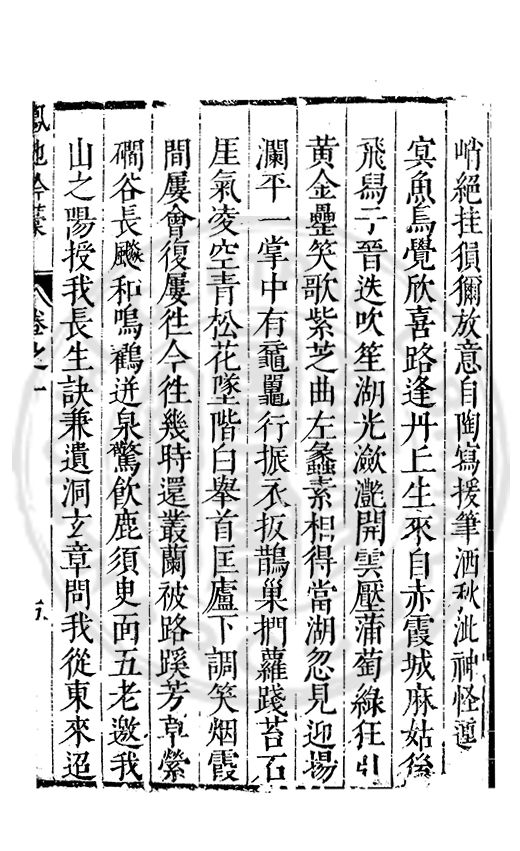 峭絕挂猿獼放意自陶寫援筆洒秋沘神怪遁
㝠魚鳥覺欣喜路逢丹丘生來自赤霞城麻姑後
飛舃子晉迭吹笙湖光瀲灔開雲壓蒲萄綠狂引
黃金罍笑歌紫芝曲左蠡素相得當湖忽見迎揚
瀾平一掌中有黿鼉行振衣扳鵲巢捫蘿踐苔石
厓氣凌空青松花墜階白舉首匡廬下調笑烟霞
間屢會復屢徃今徃幾時還叢蘭被路蹊芳草縈
磵谷長飈和鳴鶴迸泉驚飲鹿須臾面五老邀我
山之陽授我長生訣兼遺洞玄章問我從東來迢
鳳池吟藁
卷之一
五